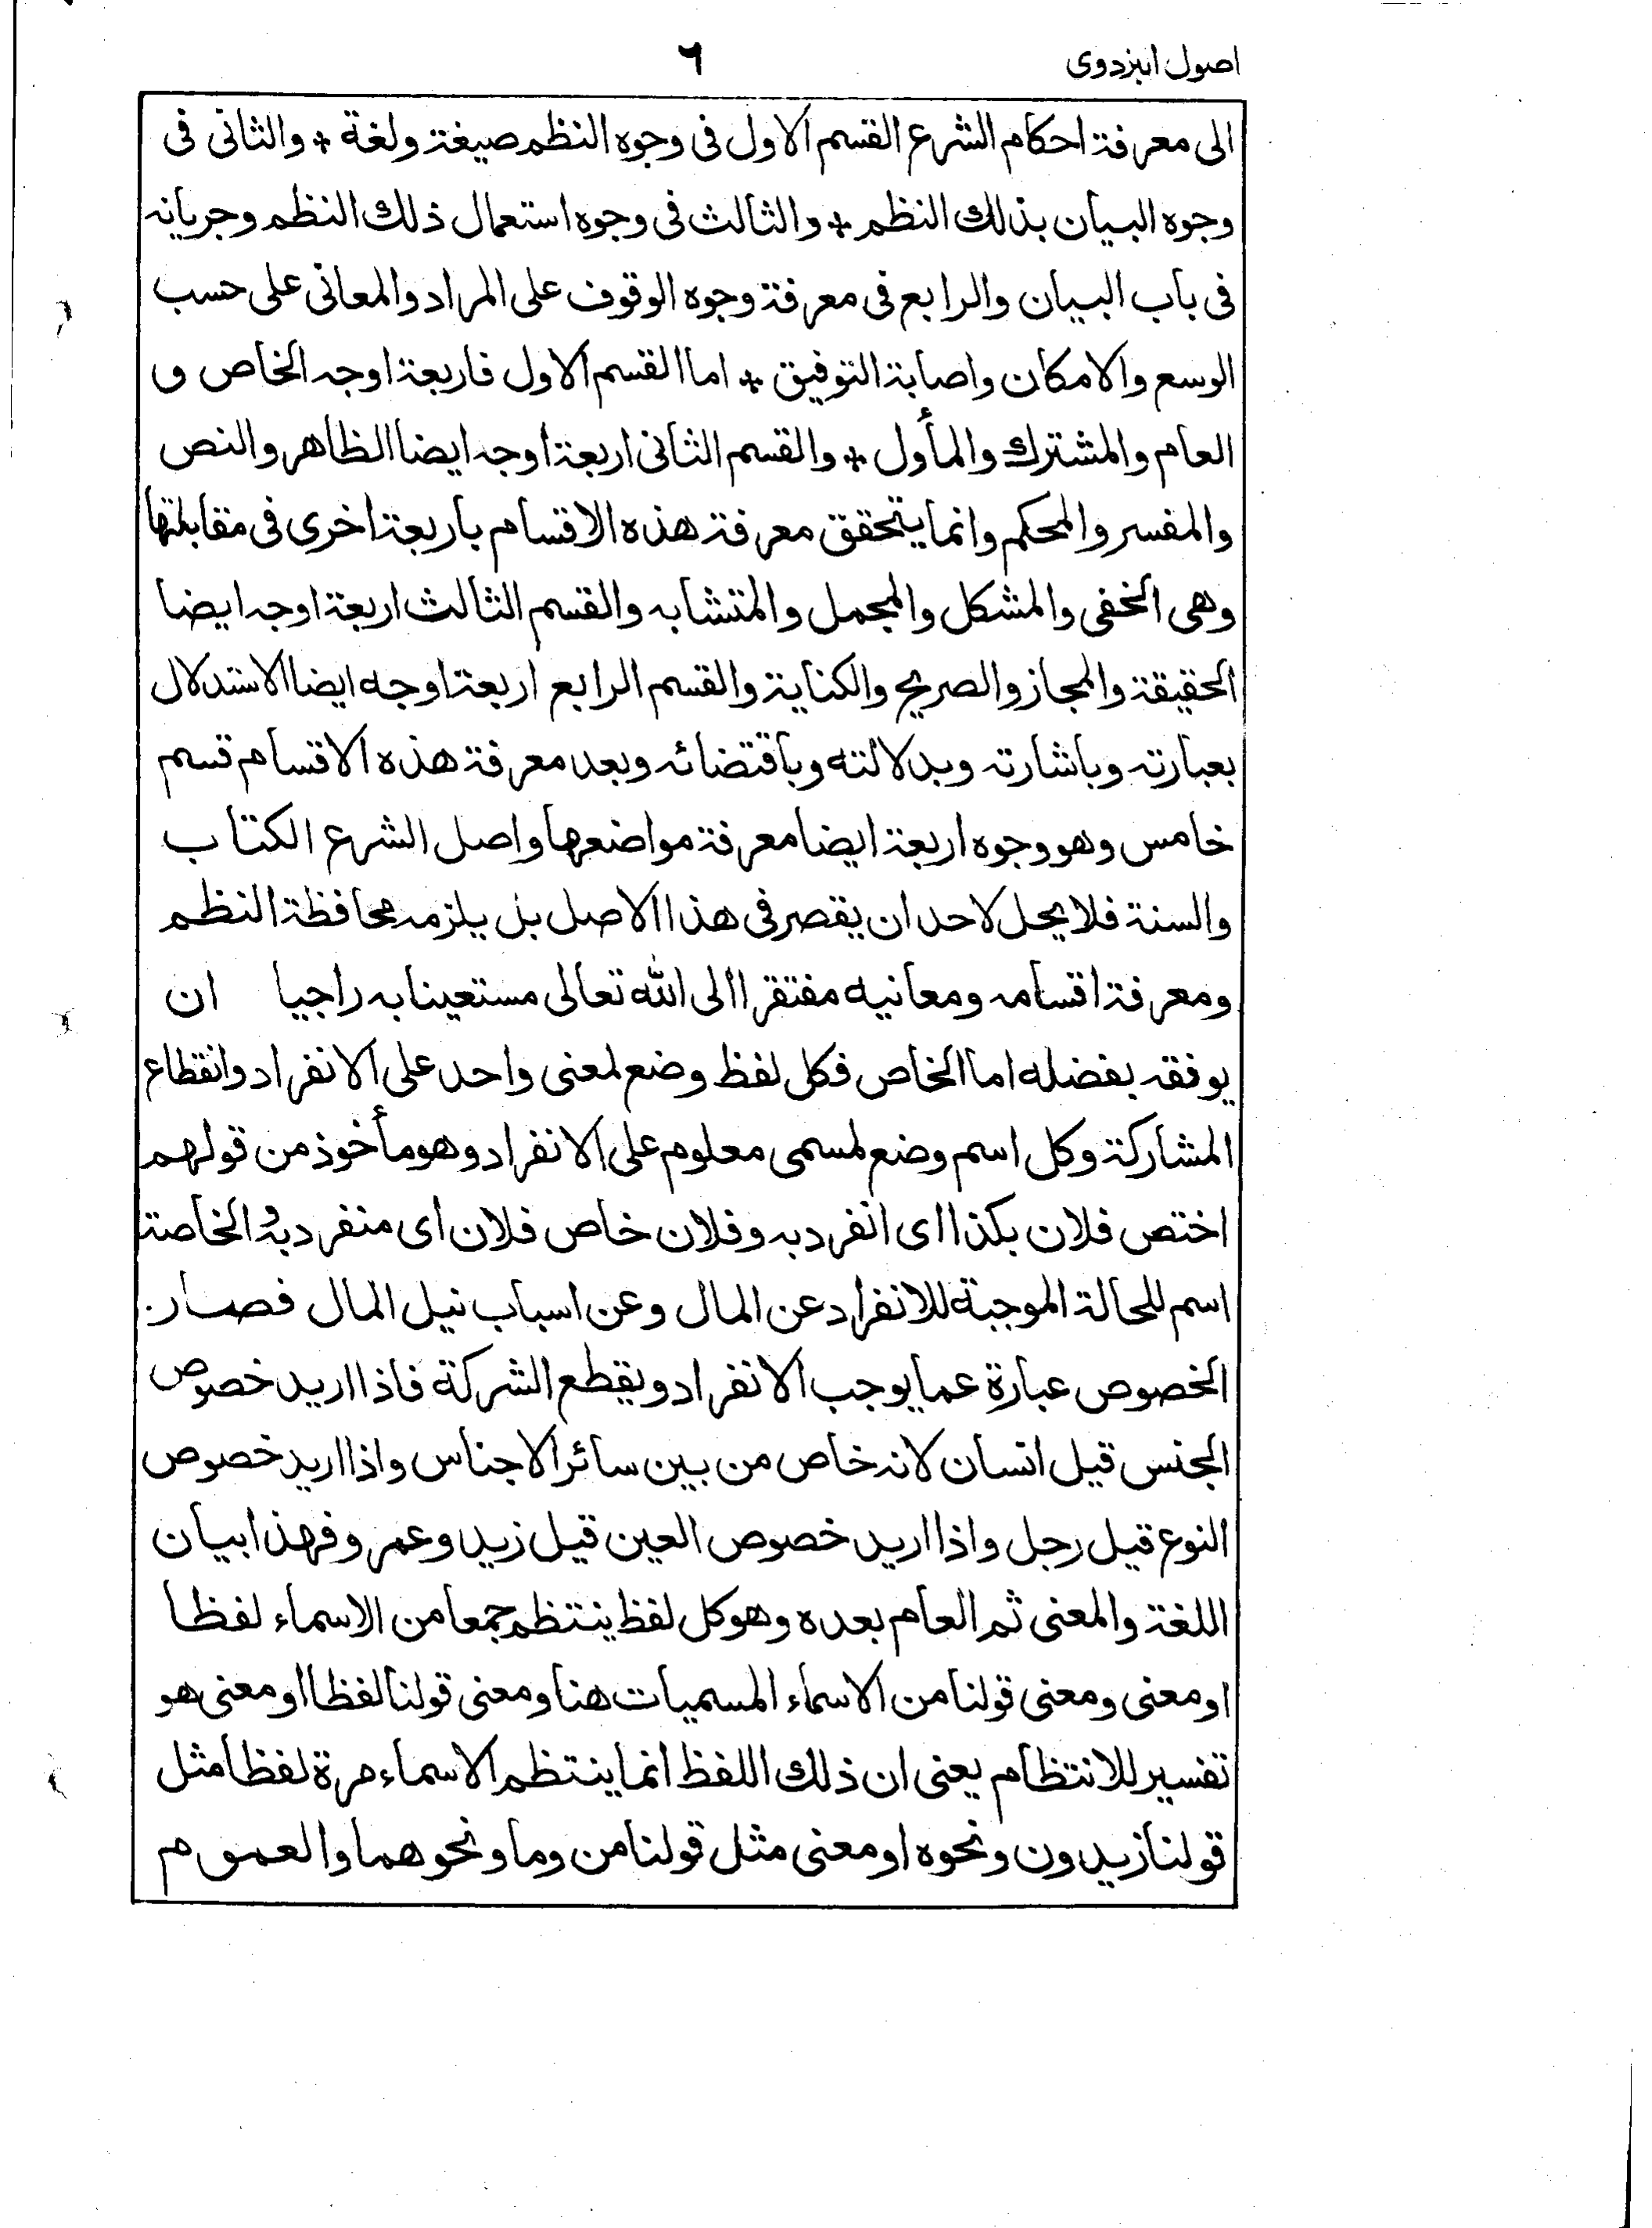 اصول البزدوى ٦
الى معرفة احكام الشرع القسم الاول فى وجوه النظم صيغة ولغة * والثانى فى
وجوه البيان بذلك النظم * والثالث فى وجوه استعمال ذلك النظم وجريانه
فى باب البيان والرابع فى معرفة وجوه الوقوف على المراد والمعانى على حسب
الوسع والامكان واصابة التوفيق * اما القسم الاول فاربعة اوجه الخاص و
العام والمشترك والمأول * والقسم الثانى اربعة اوجه ايضا الظاهر والنص
والمفسر والمحكم وانما يتحقق معرفة هذه الاقسام باربعة اخرى فى مقابلتها
وهى الخفى والمشكل والمجمل والمتشابه والقسم الثالث اربعة اوجه ايضا
الحقيقة والمجاز والصريح والكناية والقسم الرابع اربعة اوجه ايضا الاستدلال
بعبارته وباشارته وبدلالته وباقتضائه وبعد معرفة هذه الاقسام قسم
خامس وهو وجوه اربعة ايضا معرفة مواضعها واصل الشرع الكتاب
والسنة فلا يحل لاحد ان يقصر فى هذا الاصل بل يلزمه محافظة النظم
ومعرفة اقسامه ومعانيه مفتقرا الى الله تعالى مستعينا به راجيا ان
يوفقه بفضله اما الخاص فكل لفظ وضع لمعنى واحد على الانفراد وانقطاع
المشاركة وكل اسم وضع لمسمى معلوم على الانفراد وهو مأخوذ من قولهم
اختص فلان بكذا اى انفرد به وفلان خاص فلان اى منفرد به والخاصة
اسم للحالة الموجبة للانفراد عن المال وعن اسباب نيل المال فصار
الخصوص عبارة عما يوجب الانفراد ويقطع الشركة فاذا اريد خصوص
الجنس قيل انسان لانه خاص من بين سائر الاجناس واذا اريد خصوص
النوع قيل رجل واذا اريد خصوص العين قيل زيد وعمرو فهذا بيان
اللغة والمعنى ثم العام بعده وهو كل لفظ ينتظم جمعا من الاسماء لفظا
او معنى ومعنى قولنا من الاسماء المسميات هنا ومعنى قولنا لفظا او معنى هو
تفسير للانتظام يعنى ان ذلك اللفظ انما ينتظم الاسماء مرة لفظا مثل
قولنا زيدون ونحوه او معنى مثل قولنا من وما ونحوهما والعموم